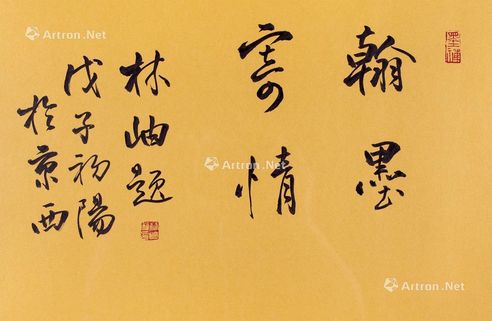 翰墨
寄情
林岫題
戊子初陽
於京西
Artron.Net
Artron.Net
Artron.Net